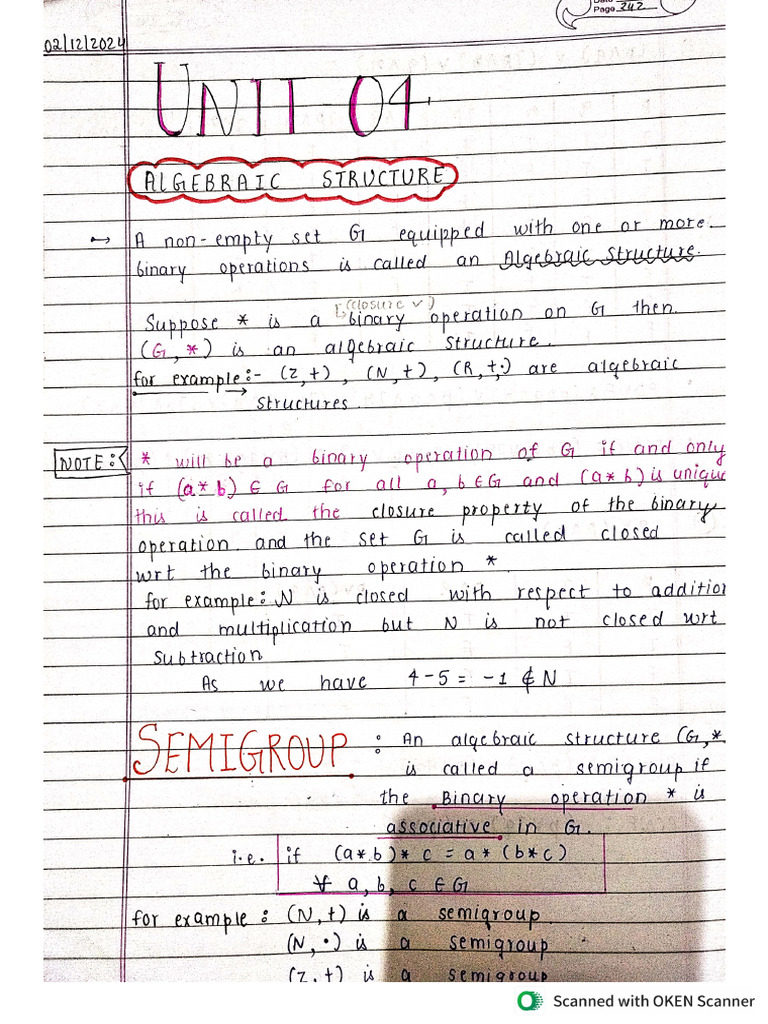 Page 242
02/12/2024
UNIT 04
ALGEBRAIC STRUCTURE
↦ A non-empty set G equipped with one or more
binary operations is called an Algebraic Structure.
(closure ✓)
Suppose * is a binary operation on G then.
(G, *) is an algebraic structure.
for example:- (Z,+), (N,+), (R,+,·) are algebraic
structures.
NOTE: * will be a binary operation of G if and only
if (a*b) ∈ G for all a, b ∈ G and (a*b) is unique
this is called the closure property of the binary
operation and the set G is called closed
wrt the binary operation *.
for example: N is closed with respect to addition
and multiplication but N is not closed wrt
subtraction
As we have 4-5 = -1 ∉ N
SEMIGROUP : An algebraic structure (G,*
is called a semigroup if
the Binary operation * is
associative in G.
i.e. if (a*b)*c = a*(b*c)
∀ a, b, c ∈ G
for example: (N,+) is a semigroup
(N,·) is a semigroup
(Z,+) is a semigroup
Scanned with OKEN Scanner